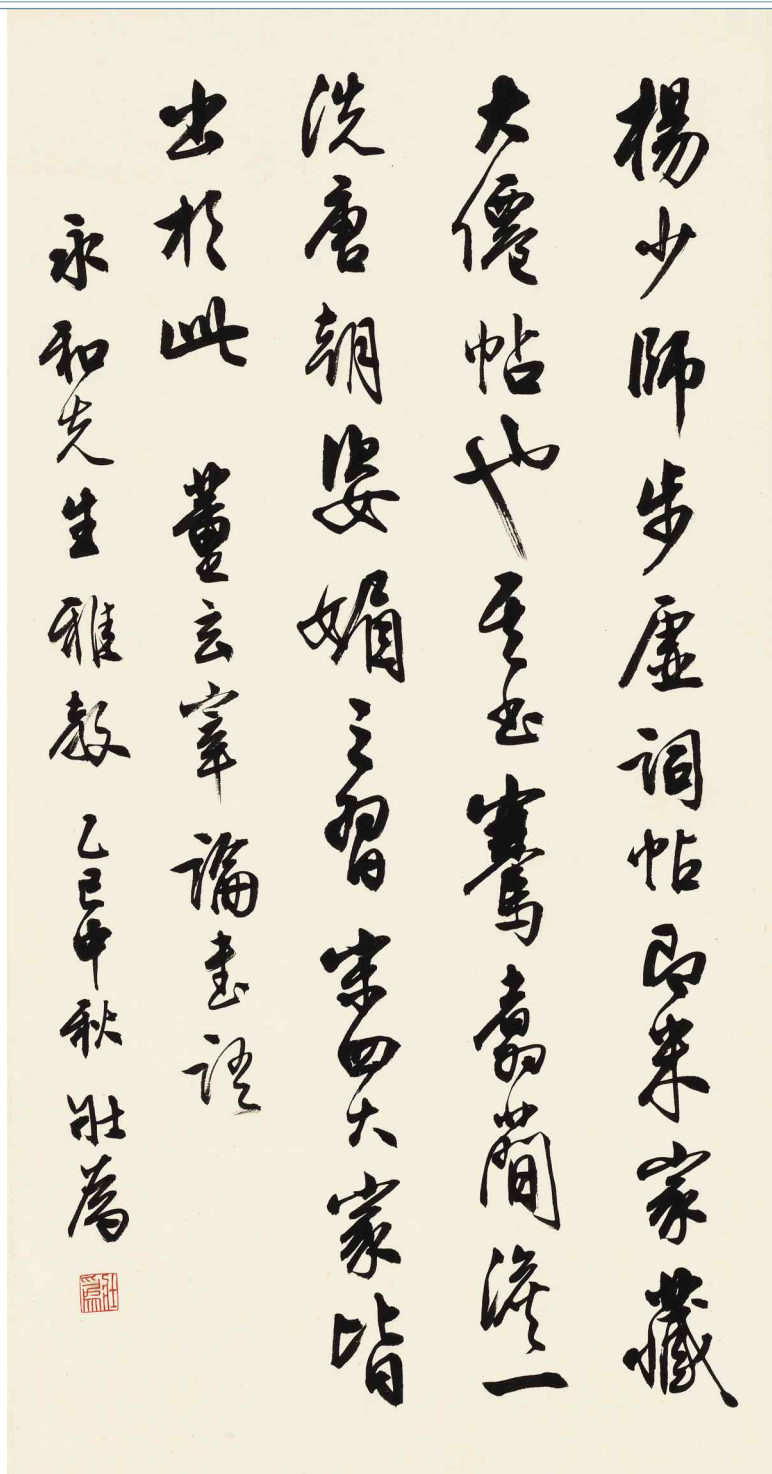 楊少師步虛詞帖即米家藏
大僊帖也其書騫翥簡澹一
洗唐朝姿媚之習宋四大家皆
出於此 董玄宰論書語
永和先生雅教 乙巳中秋 莊嚴